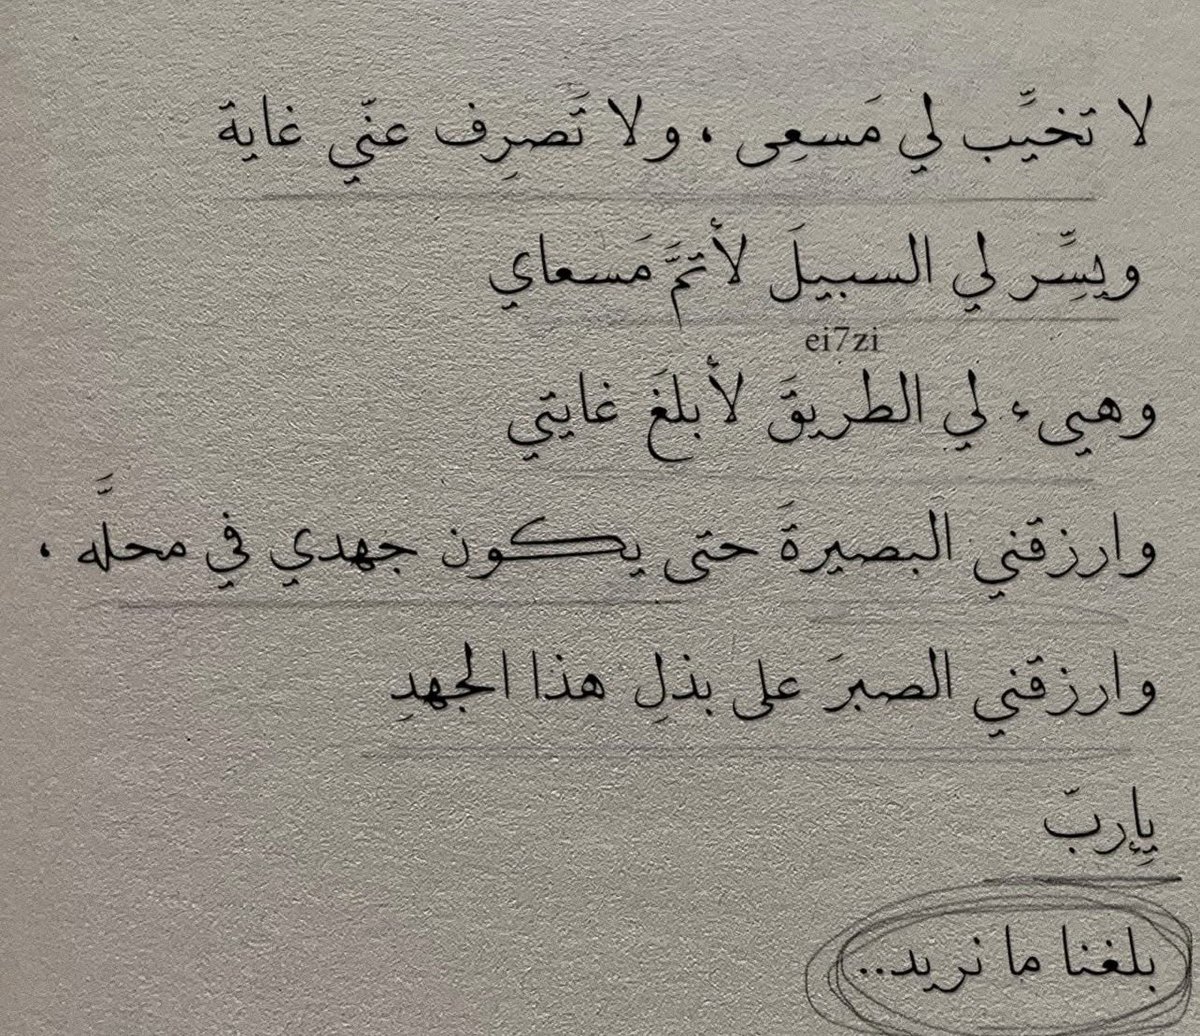 لا تخيِّب لي مَسعِى ، ولا تَصرِف عنّي غاية
ويسِّر لي السبيلَ لأتمَّ مَسعاي
ei7zi
وهيىء لي الطريقَ لأبلغَ غايتي
وارزقني البصيرةَ حتى يكون جهدي في محلَّه ،
وارزقني الصبرَ على بذلِ هذا الجهدِ
يإربّ
بلغنا ما نريد..